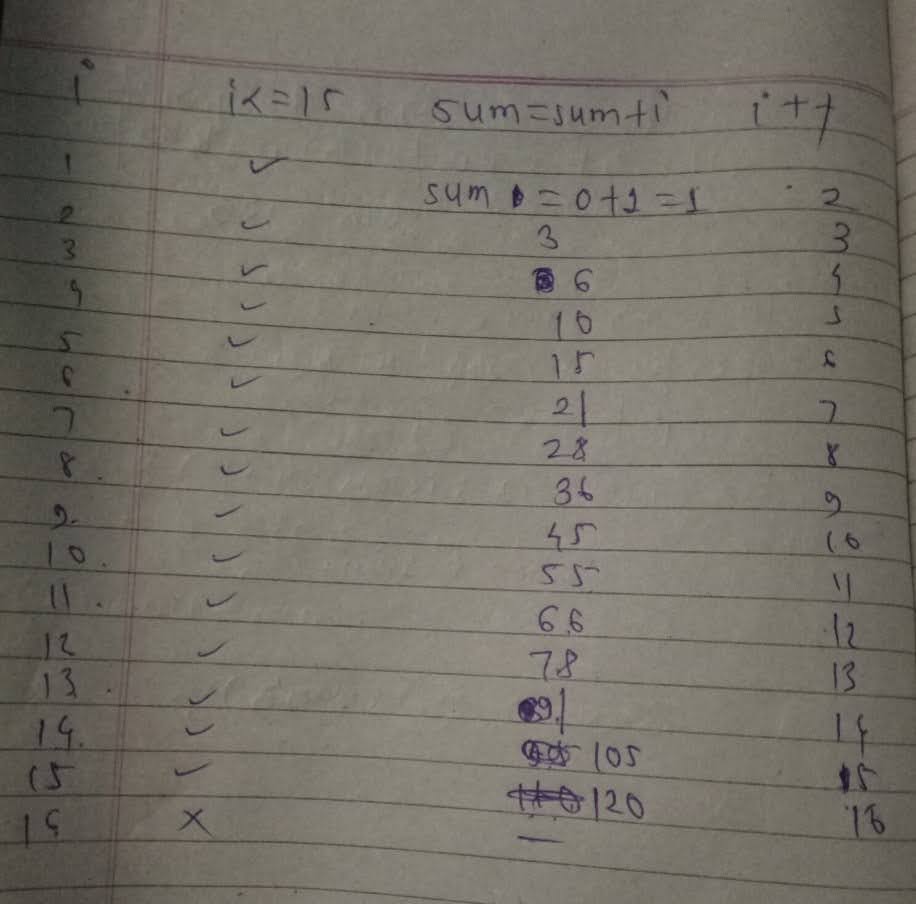 i i<=15 sum=sum+i i++
1 ✓ sum = 0+1=1 2
2 ✓ 3 3
3 ✓ 6 4
4 ✓ 10 5
5 ✓ 15 6
6 ✓ 21 7
7 ✓ 28 8
8. ✓ 36 9
9. ✓ 45 10
10. ✓ 55 11
11. ✓ 66 12
12 ✓ 78 13
13. ✓ 91 14
14. ✓ 105 15
15 ✓ 120 16
16 × —